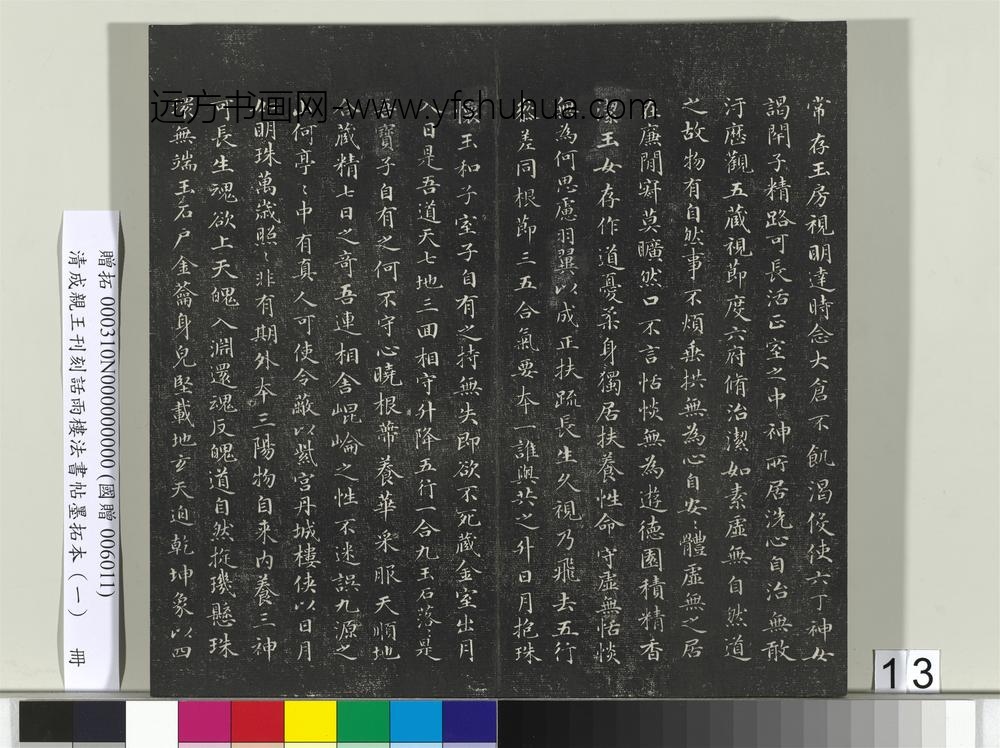 常存玉房視明達時念大倉不飢渴伇使六丁神女
謁閇子精路可長活正室之中神所居洗心自治無敢
汙歷觀五藏視節度六府脩治潔如素虛無自然道
之故物有自然事不煩垂拱無為心自安〻體虛無之居
在廉間寂莫曠然口不言恬惔無為遊德園積精香
潔玉女存作道憂柔身獨居扶養性命守虛無恬惔
無為何思慮羽翼以成正扶疏長生久視乃飛去五行
參差同根節三五合氣要本一誰與共之升日月抱珠
懷玉和子室子自有之持無失即欲不死藏金室出月
入日是吾道天七地三回相守升降五行一合九玉石落〻是
吾寶子自有之何不守心曉根蒂養華采服天順地
合藏精七日之奇吾連相舍崐崘之性不迷誤九源之
山何亭〻中有真人可使令蔽以紫宮丹城樓俠以日月
如明珠萬歲照〻非有期外本三陽物自来內養三神
可長生魂欲上天魄入淵還魂反魄道自然旋璣懸珠
環無端玉石戶金籥身皃堅載地玄天迫乾坤象以四
远方书画网-www.yfshuhua.com
贈拓 000310N000000000 (國贈 006011)
清成親王刊刻詒晉樓法書帖墨拓本（一） 冊
13